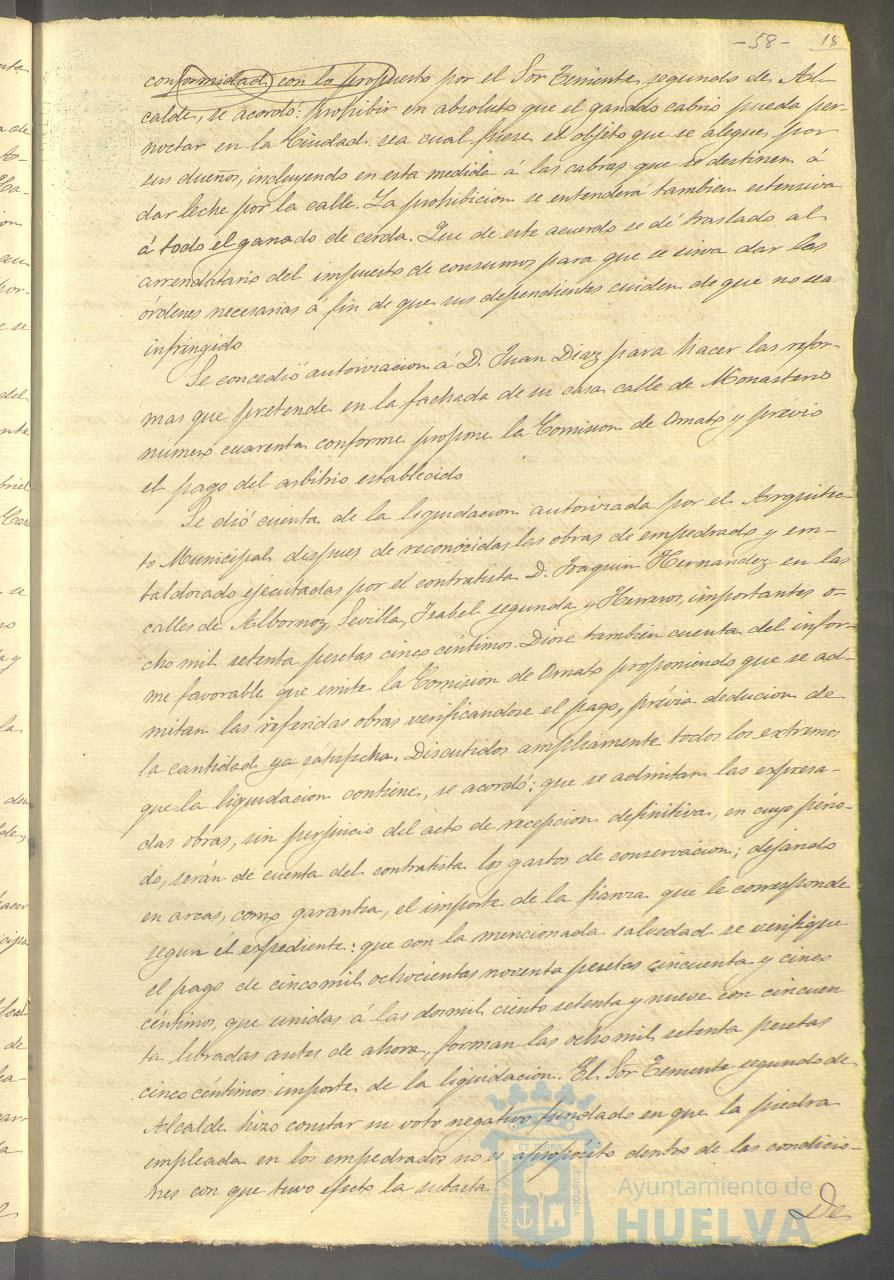 -58- 18
conformidad con lo propuesto por el Sor Teniente segundo de Al-
calde, se acordó: prohibir en absoluto que el ganado cabrio pueda per-
noctar en la Ciudad sea cual fuese el objeto que se alegue por
sus dueños, incluyendo en esta medida á las cabras que se destinen á
dar leche por la calle. La prohibicion se entenderá tambien estensiva
á todo el ganado de cerda. Que de este acuerdo se dé traslado al
arrendatario del impuesto de consumos para que se sirva dar las
órdenes necesarias á fin de que sus dependientes cuiden de que no sea
infringido
Se concedió autorizacion á D. Juan Diaz para hacer las refor-
mas que pretende en la fachada de su casa calle de Monasterio
número cuarenta conforme propone la Comision de Ornato y prévio
el pago del arbitrio establecido
Se dió cuenta de la liquidacion autorizada por el Arquitec-
to Municipal despues de reconocidas las obras de empedrado y em-
baldosado ejecutadas por el contratista D. Joaquin Hernandez en las
calles de Albornoz, Sevilla, Isabel segunda y Herreros, importantes o-
cho mil setenta pesetas cinco céntimos. Diose tambien cuenta del infor-
me favorable que emite la Comision de Ornato proponiendo que se ad-
mitan las referidas obras verificandose el pago, prévia deducion de
la cantidad ya satisfecha. Discutidos ampliamente todos los extremos
que la liquidacion contiene, se acordó: que se admitan las expresa-
das obras, sin perjuicio del acto de recepcion definitiva, en cuyo perio-
do, serán de cuenta del contratista los gastos de conservacion; dejando
en arcas, como garantia, el importe de la fianza que le corresponde
segun el expediente: que con la mencionada salvedad se verifique
el pago de cinco mil ochocientas noventa pesetas cincuenta y cinco
céntimos, que unidas á las dos mil ciento setenta y nueve con cincuen
ta libradas antes de ahora, forman las ocho mil setenta pesetas
cinco céntimos importe de la liquidacion. El Sor Teniente segundo de
Alcalde hizo constar su voto negativo fundado en que la piedra
empleada en los empedrados no es apropósito dentro de las condicio-
nes con que tuvo efecto la subasta.
De
PORTUS MARIS ET TERRE CUSTODIA
Ayuntamiento de
HUELVA